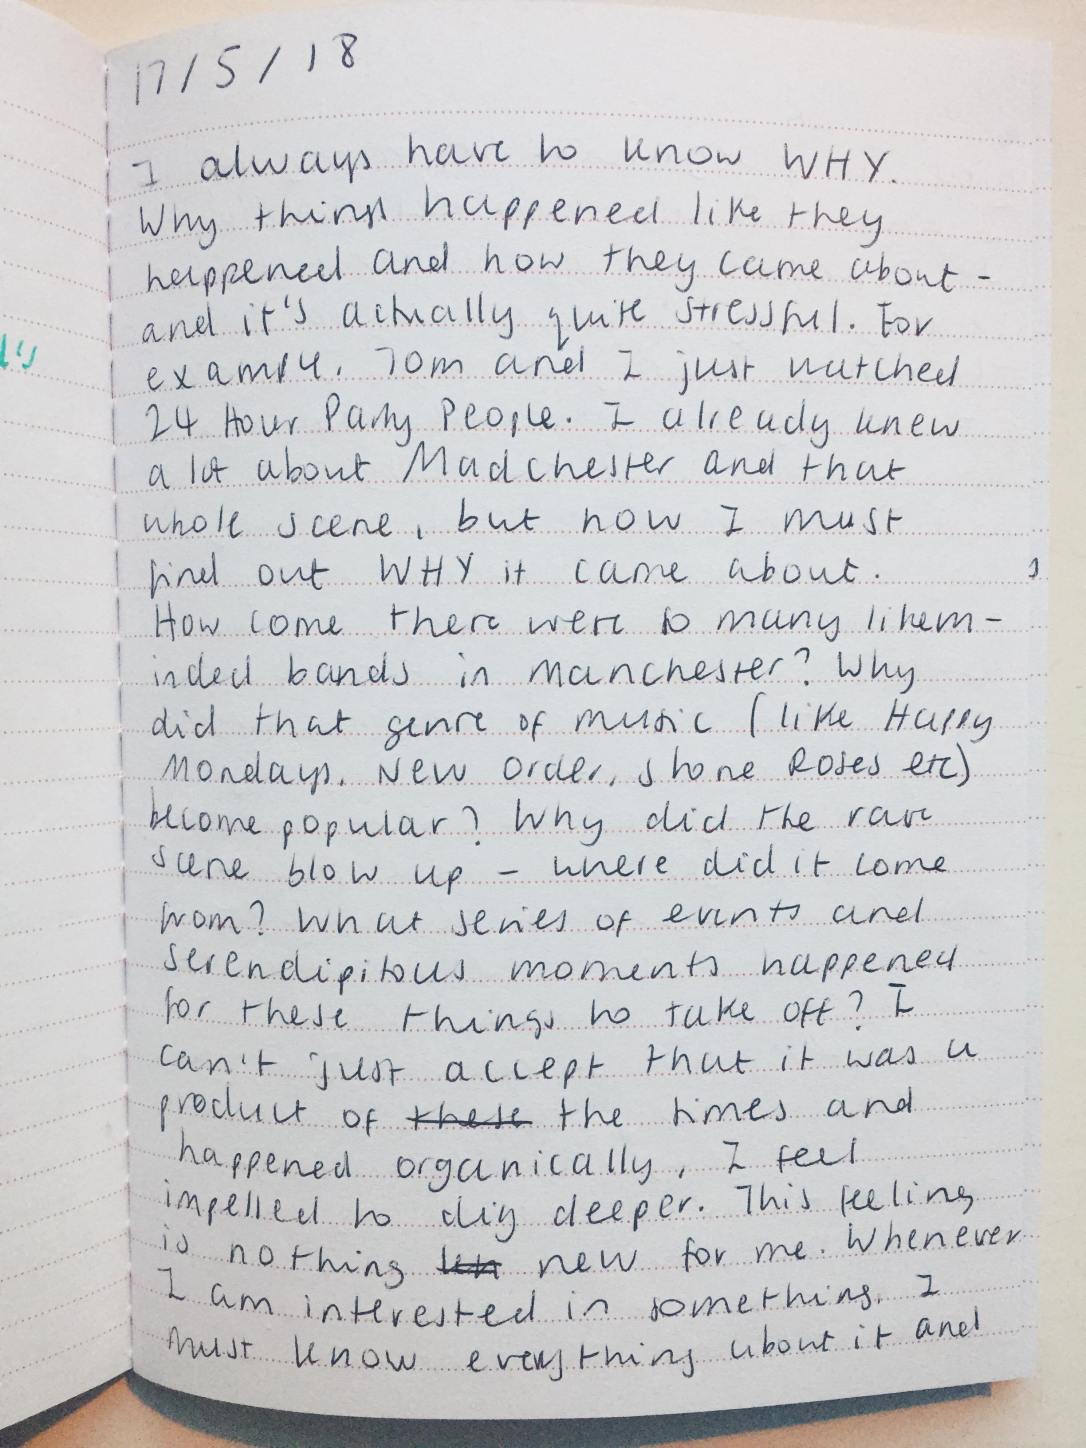 17/5/18
I always have to know WHY.
Why things happened like they
happened and how they came about -
and it's actually quite stressful. For
example, Tom and I just watched
24 Hour Party People. I already knew
a lot about Madchester and that
whole scene, but now I must
find out WHY it came about.
How come there were so many likem-
inded bands in Manchester? Why
did that genre of music (like Happy
Mondays, New Order, Stone Roses etc)
become popular? Why did the rave
scene blow up - where did it come
from? What series of events and
serendipitous moments happened
for these things to take off? I
can't just accept that it was a
product of these the times and
happened organically, I feel
impelled to dig deeper. This feeling
is nothing kn new for me. Whenever
I am interested in something, I
must know everything about it and